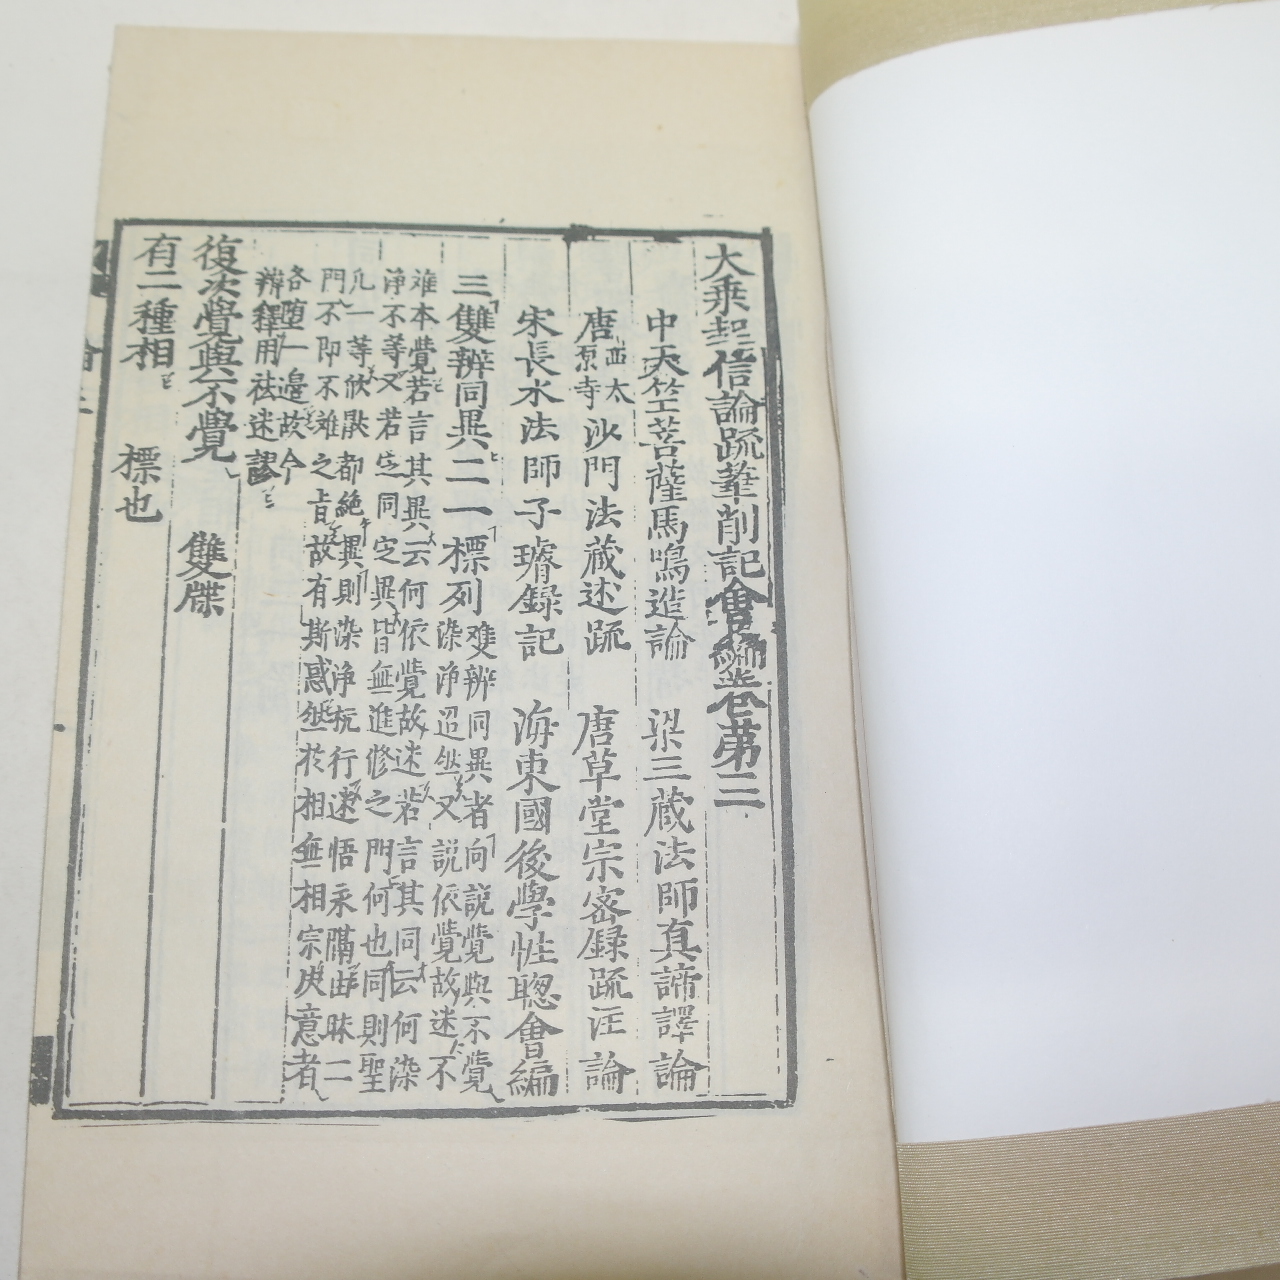 大乘起信論疏筆削記會編卷第三
中天竺菩薩馬鳴造論 梁三藏法師真諦譯論
唐西太原寺沙門法藏述疏 唐草堂宗密錄疏注論
宋長水法師子璿錄記 海東國後學性聰會編
三雙辨同異二一標列雙辨同異者向說覺與不覺
染淨迢然又說依覺故迷不
難本覺若言其異云何依覺故迷若言其同云何染
淨不等又若定同定異皆無進修之門何也同則聖
凡一等欣猒都絶異則染淨杭行迷悟永隔由昧二
門不即不離之旨故有斯惑然於相無相宗決意者
各墮一邊故今
辨釋用袪迷謬
復次覺與不覺 雙牒
有二種相 標也